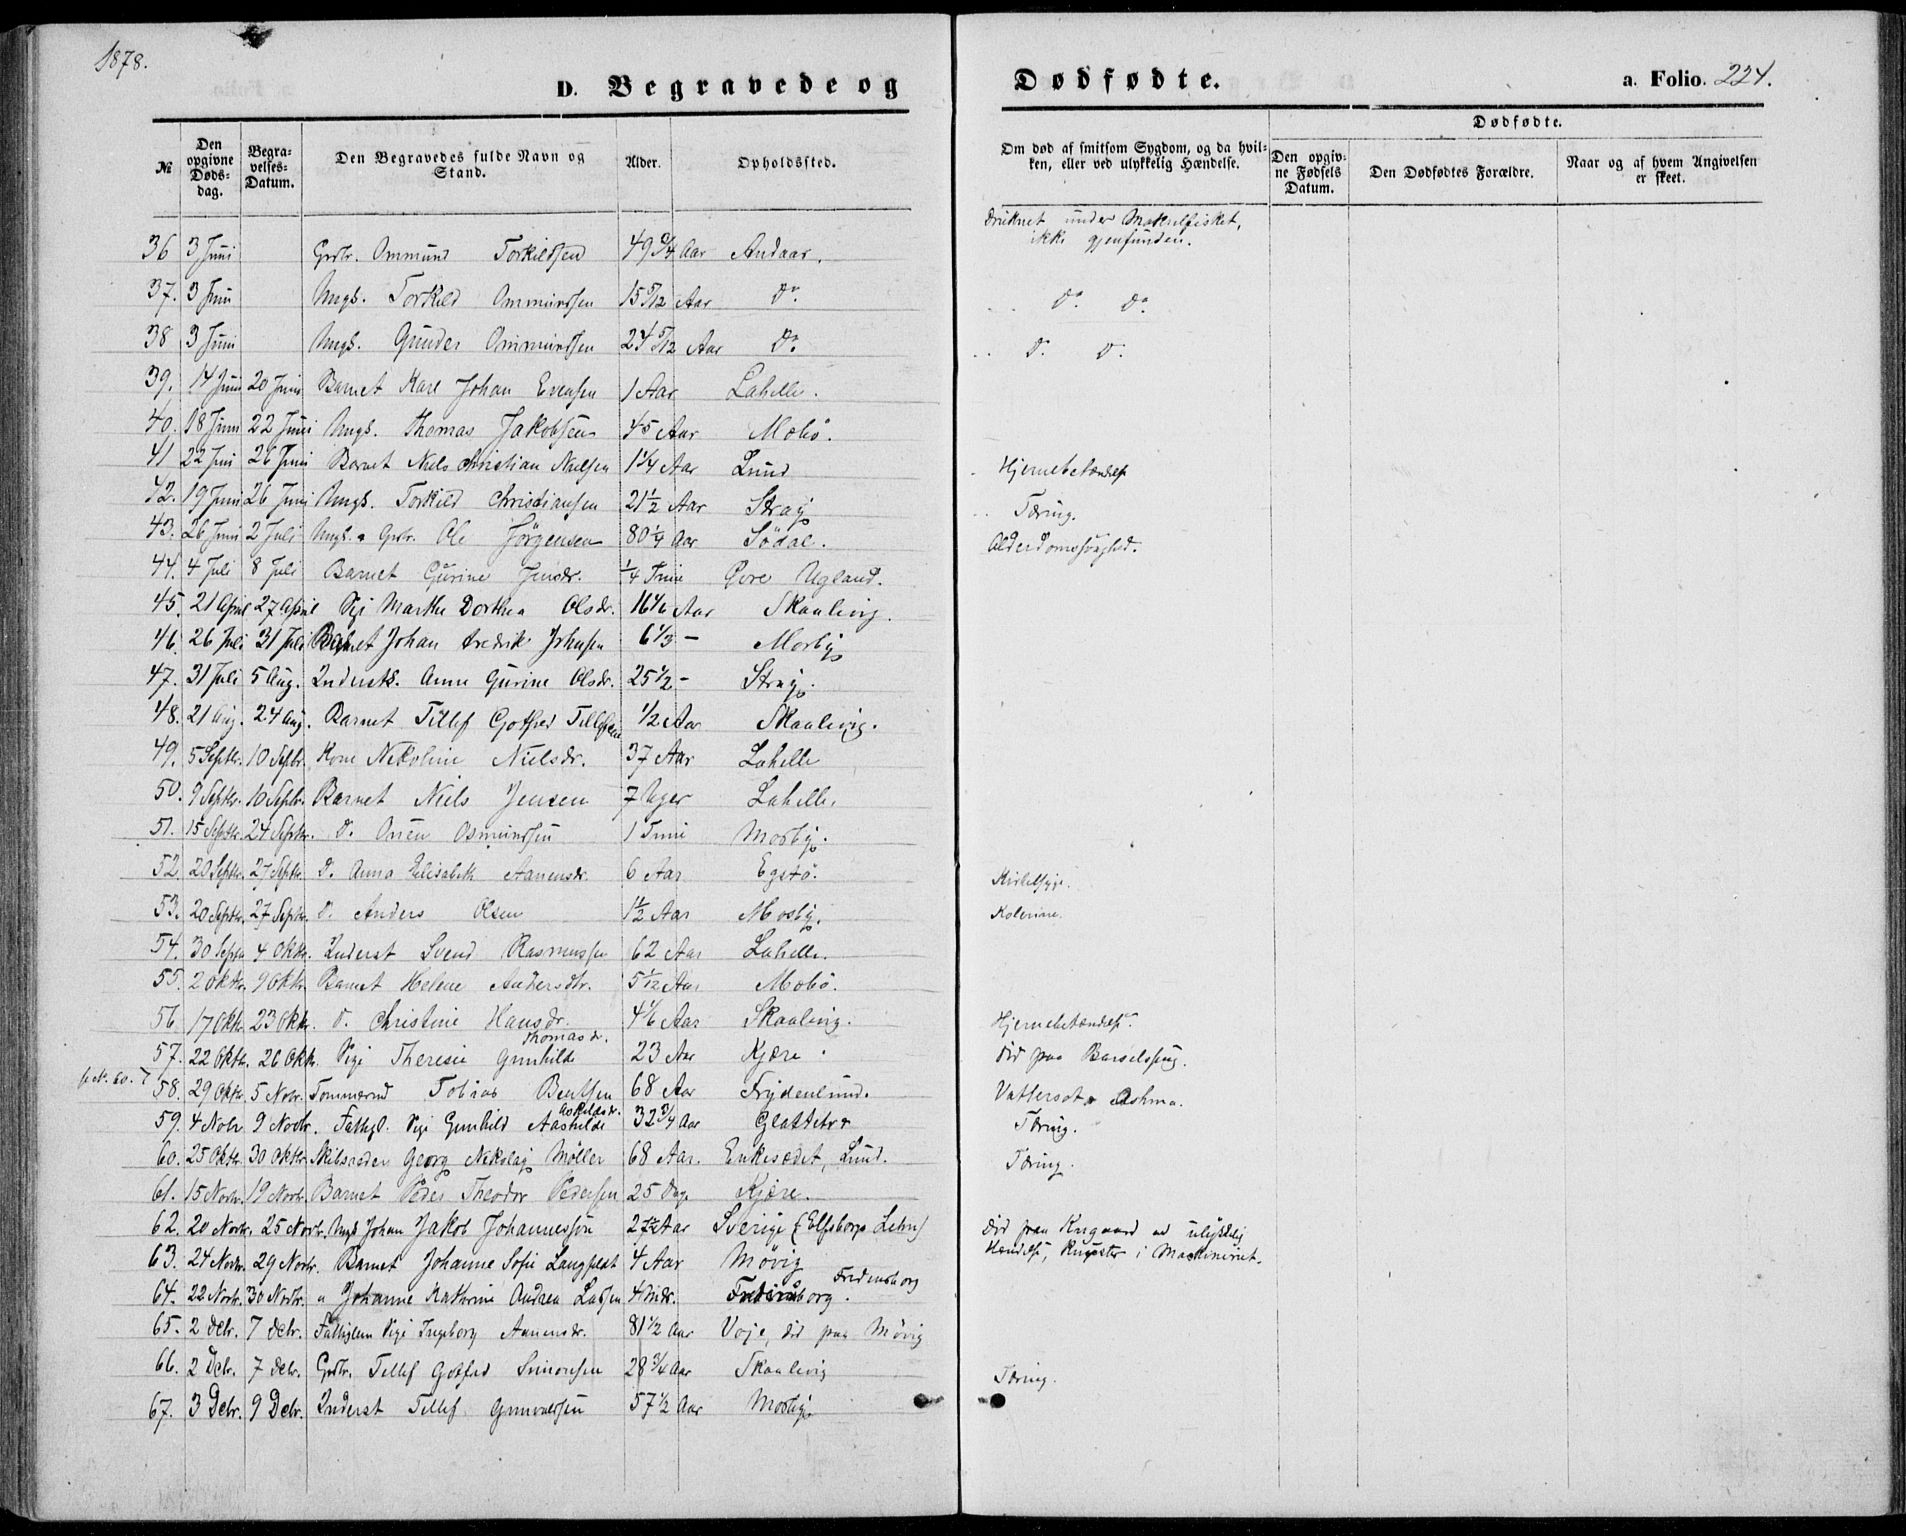 1878.
D. Begravede og Dødfødte.
a. Folio. 224.
№
Den opgivne Døds-dag.
Begra-velses-Datum.
Den Begravedes fulde Navn og Stand.
Alder.
Opholdssted.
Om død af smitsom Sygdom, og da hvil-ken, eller ved ulykkelig Hændelse.
Dødfødte.
Den opgiv-ne Fødsels Datum.
Den Dødfødtes Forældre.
Naar og af hvem Angivelsen er skeet.
36 3 Juni Grdbr. Ommund Torkildsen 49 Aar Andaas. Druknet under Makrelfisket, ikke gjenfunden.
37. 3 Juni Ungk. Torkild Ommundsen 15 5/12 Aar Do. Do. Do.
38 3 Juni Ungk. Gunder Ommundsen 24 5/12 Aar Do. D. D.
39. 14 Juni 20 Juni Barnet Karl Johan Evensen 1 Aar Lahelle.
40. 18 Juni 22 Juni Ungk. Thomas Jakobsen 45 Aar Mæbø.
41 22 Juni 26 Juni Barnet Niels Christian Nielsen 1 1/4 Aar Lund Hjernebetændelse
42. 19 Juni 26 Juni Ungk. Torkild Christiansen 21 1/2 Aar Stray Tæring.
43. 26 Juni 2 Juli Ungk. Grbr. Ole Jörgensen 80 1/4 Aar Södal. Alderdomssvaghed.
44. 4 Juli 8 Juli Barnet Gurine Jensdr. 1/4 Time Øvre Ugland.
45. 21 April 27 April Pige Marthe Dorthea Olsdr. 16 1/6 Aar Skaalevig.
46. 26 Juli 31 Juli Barnet Johan Fredrik Johnsen 6 1/3 - Mosby
47. 31 Juli 5 Aug. Inderstk. Anne Gurine Olsdr. 25 1/2 - Stray.
48. 21 Aug. 24 Aug. Barnet Tellef Gotfred Tellefsen 1/2 Aar Skaalevig.
49. 5 Septbr. 10 Septbr. Kone Nikoline Nielsdr. 37 Aar Lahelle
50. 9 Septbr. 10 Septbr. Barnet Niels Jensen 7 Uger Lahelle.
51. 15 Septbr. 24 Septbr. D. Onen Osmundsen 1 Time Mosby.
52 20 Septbr. 27 Septbr. D. Anna Elisabeth Aanensdr. 6 Aar Egstø. Kirtelsyge.
53. 20 Septbr. 27 Septbr. D. Anders Olsen 1 1/2 Aar Mosby. Kolerine.
54. 30 Septbr 4 Oktbr. Inderst Svend Rasmussen 62 Aar Lahelle.
55. 2 Oktbr. 9 Oktbr. Barnet Helene Andersdtr. 5 1/12 Aar Mæbø.
56 17 Oktbr. 23 Oktbr. D. Christine Hansdr. 4 1/6 Aar Skaalevig. Hjernebetændelse.
57. 22 Oktbr. 26 Oktbr. Pige Theresie Gunhilde Thomasdr. 23 Aar Kjære. Död paa Barselseng.
se N. 60. 58. 29 Oktbr. 5 Novbr. Tømmermd Tobias Bentsen 68 Aar Frydenlund. Vattersot Asthma.
59. 4 Novbr 9 Novbr. Fattigl. Pige Gunhild Aashilde Askildsdr. 32 3/4 Aar Glattetre Tæring.
60. 25 Oktbr. 30 Oktbr. Skibsreder Georg Nikolay Møller 68 Aar. Enkesædet, Lund. Tæring.
61. 15 Novbr. 19 Novbr. Barnet Peder Theodor Pedersen 25 Dage Kjære.
62. 20 Novbr. 25 Novbr. Ungk Johan Jakob Johannessøn 27 1/2 Aar Sverige (Elfsborgs Lehn) Död paa Krugaard ved ulykkelig Hændelse, Knuster i Maskineriet.
63. 24 Novbr. 29 Novbr. Barnet Johanne Sofie Langfeldt 4 Aar Møvig
64. 22 Novbr. 30 Novbr. " Johanne Kathrine Andrea Larsen 4 Mdr. Fredensborg. Fredensborg
65. 2 Debr. 7 Debr. Fattiglem Pige Ingeborg Aanensdr. 81 1/2 Aar Voje, död paa Møvig
66. 2 Debr. 7 Debr. Grdbr. Tellef Gotfred Simonsen 28 3/4 Aar Skaalevig Tæring.
67. 3 Debr. 9 Debr. Inderst Tellef Gunvaldsen 57 1/2 Aar Mosby